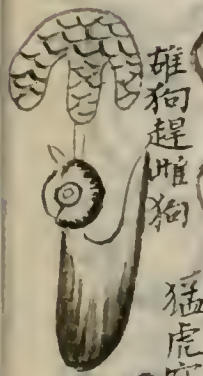 雄狗趕雌狗
猛虎